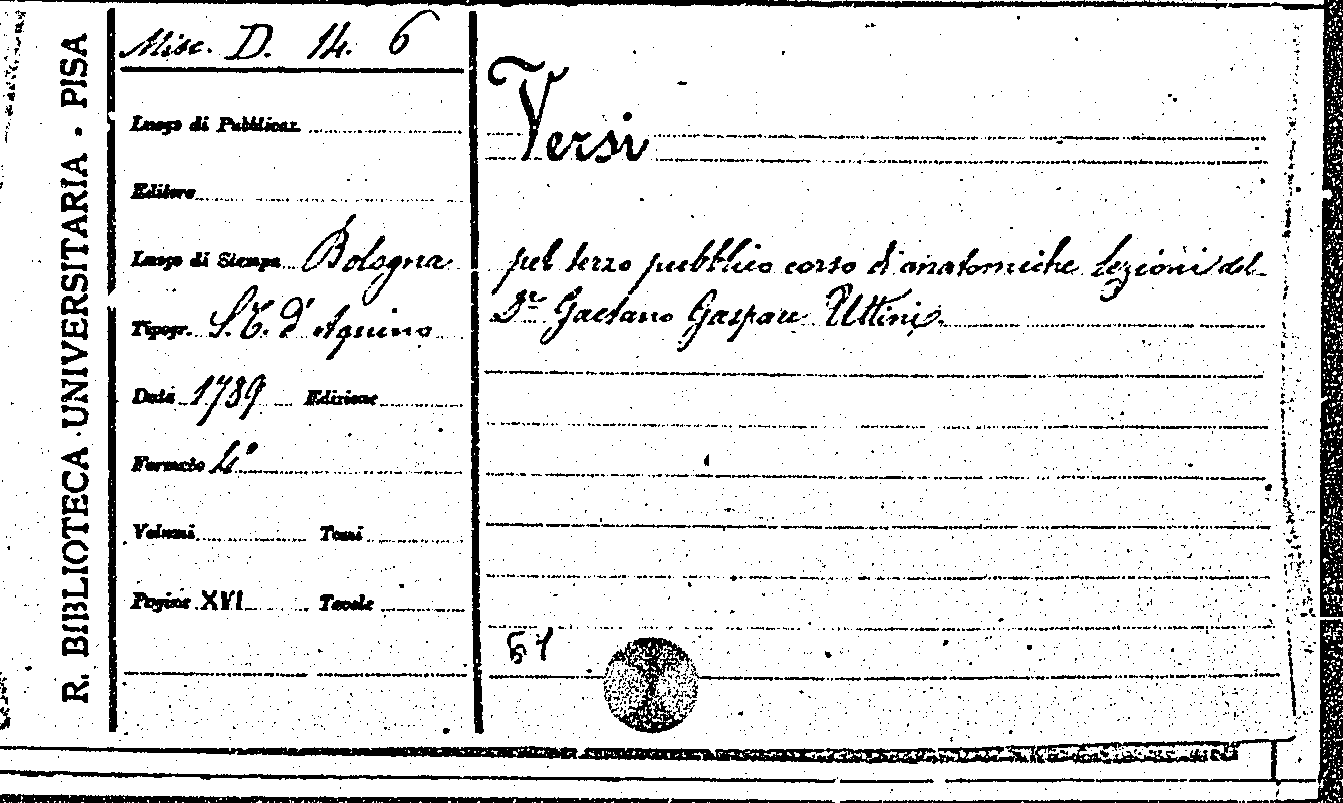 R. BIBLIOTECA UNIVERSITARIA - PISA
Misc. D. 14. 6
Luogo di Pubblicaz.
Editore
Luogo di Stampa Bologna
Tipogr. S. T. d'Aquino
Data 1789 Edizione
Formato 4°
Volumi Tomi
Pagine XVI Tavole
Versi
pel terzo pubblico corso d'anatomiche lezioni del
Dr Gaetano Gaspare Uttini.
51